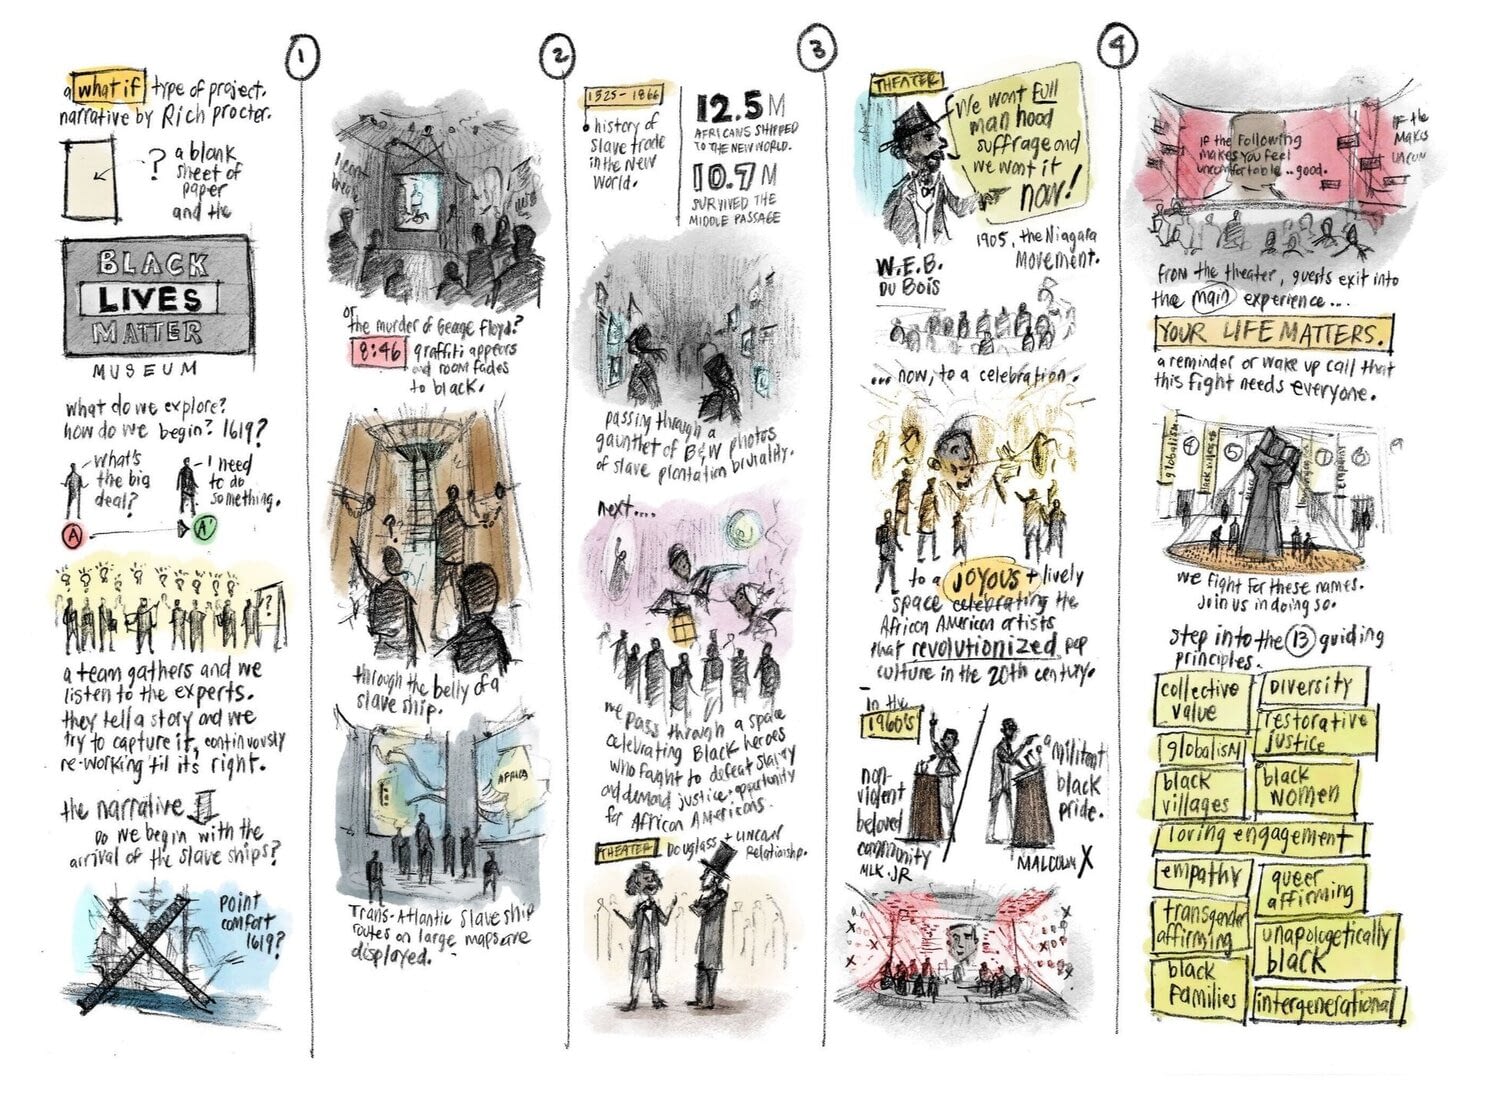 1
2
3
4
a what if type of project.
narrative by Rich procter.
?
a blank
sheet of
paper
and the
BLACK
LIVES
MATTER
MUSEUM
what do we explore?
how do we begin? 1619?
What's
the big
deal?
I need
to do
something.
A
A'
?
a team gathers and we
listen to the experts.
they tell a story and we
try to capture it, continuously
re-working 'til it's right.
the narrative
Do we begin with the
arrival of the slave ships?
point
comfort
1619?
I can't
breathe
or
the murder of George Floyd?
8:46 graffiti appears
and room fades
to black.
?
through the belly of a
slave ship.
AFRICA
Trans-Atlantic slave ship
routes on large maps are
displayed.
1525-1866
history of
slave trade
in the New
World.
12.5M
AFRICANS SHIPPED
TO THE NEW WORLD.
10.7M
SURVIVED THE
MIDDLE PASSAGE
passing through a
gauntlet of B&W photos
of slave plantation brutality.
next....
we pass through a space
celebrating Black heroes
who fought to defeat slavery
and demand justice + opportunity
for African Americans.
THEATER Douglass + Lincoln
Relationship.
THEATER
We want full
man hood
suffrage and
we want it
now!
1905, the Niagara
Movement.
W.E.B.
DU BOIS
... now, to a celebration.
to a JOYOUS + lively
space celebrating the
African American artists
that revolutionized pop
culture in the 20th century.
in the
1960's
non-
violent
beloved
community
MLK. JR
a militant
black
pride.
MALCOLM X
If the Following
makes you feel
uncomfortable...good.
If the
Makes
uncom
from the theater, guests exit into
the main experience....
YOUR LIFE MATTERS.
a reminder or wake up call that
this fight needs everyone.
globalism
4
5
7
empathy
we fight for these names.
Join us in doing so.
step into the 13 guiding
principles.
collective
value
diversity
globalism
restorative
justice
black
villages
black
women
loving engagement
empathy
queer
affirming
transgender
affirming
unapologetically
black
black
families
intergenerational